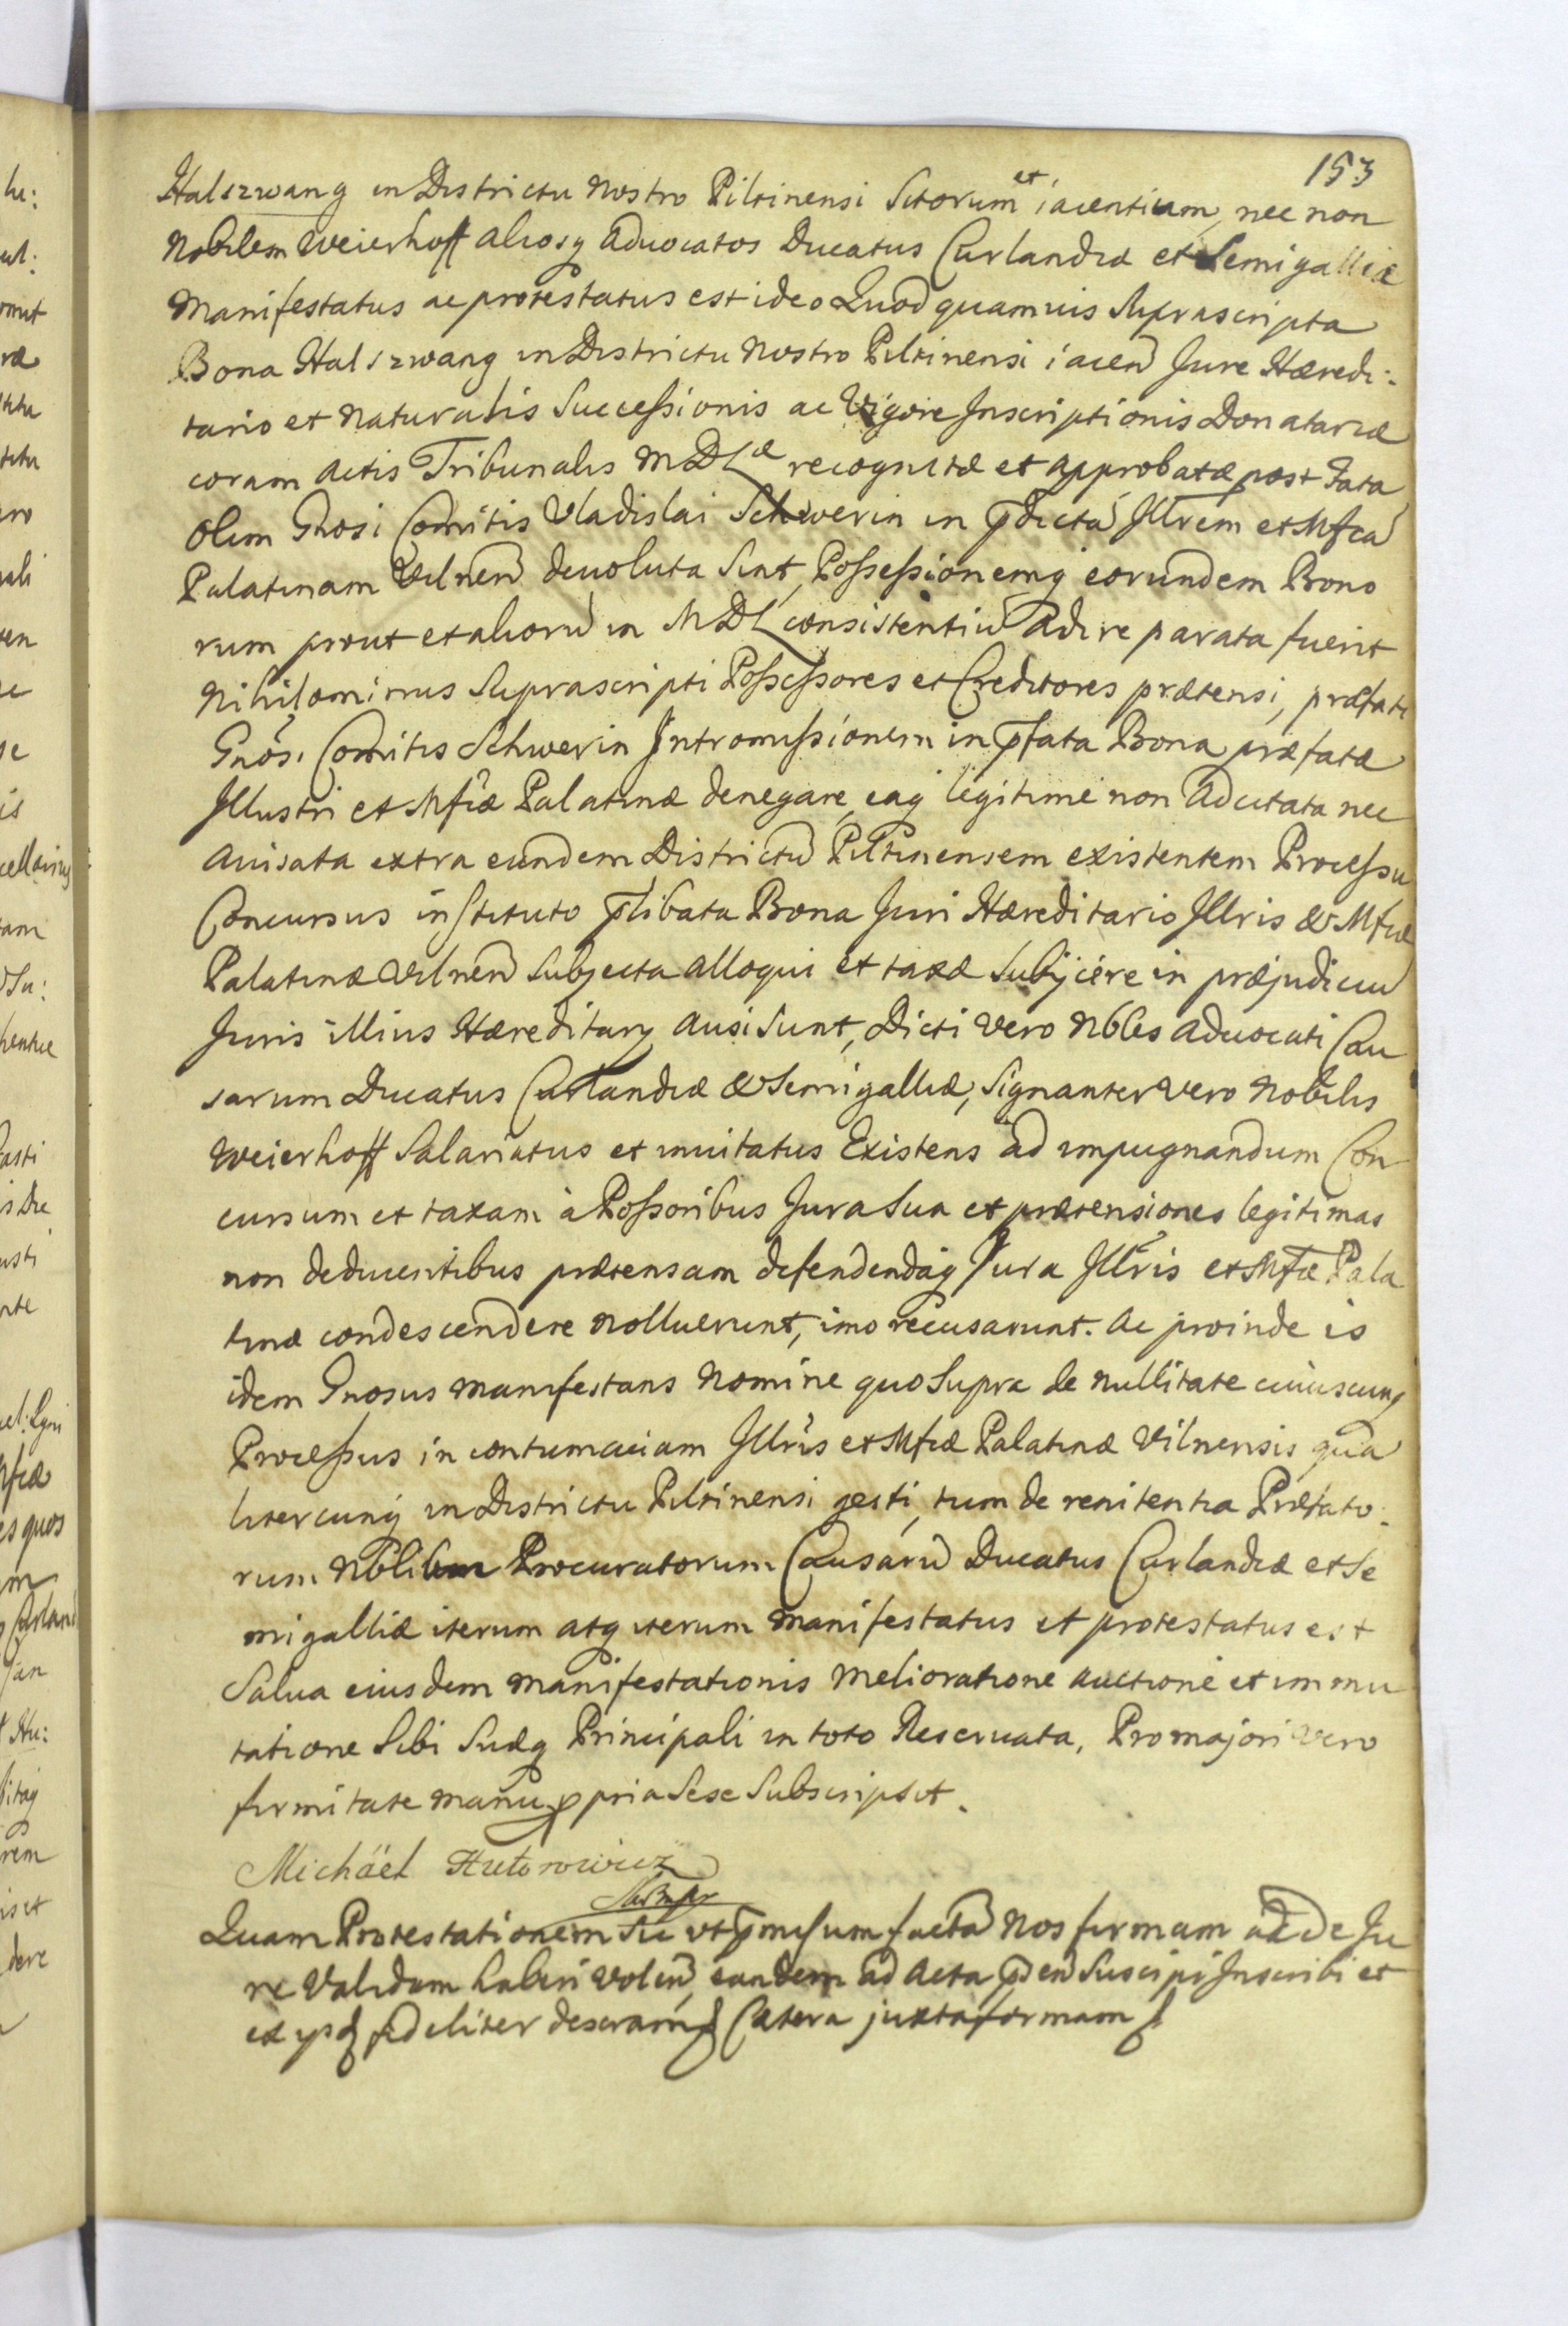 153
Halszwang in Districtu Nostro Piltinensi Sitorum et iacentium, nec non
Nobilem Weierhoff aliosq Aduocatos Ducatus Curlandiæ et Semigalliæ
Manifestatus ac protestatus est ideo Quod quamuis Supra scripta
Bona Halszwang in Districtu Nostro Piltinensi iacen Jure Hæredi:
tario et Naturalis Successionis ac Vigore Inscriptionis Donatariæ
coram Actis Tribunalis MDLæ recognitæ et approbatæ post Fata
Olim Gnosi Comitis Vladislai Schwerin in pdictā Jllrem et Mfcā
Palatinam Vilnen deuoluta sint, Possessionemq eorundem Bono
rum prout et aliorū in MDL consistentiū Adire parata fuerit
Nihilominus Suprascripti Possessores et Creditores prætensi, præfati
Gnosi Comitis Schwerin Intromissionem in pfata Bona præfatæ
Jllustri et Mficæ Palatinæ denegare, eaq legitime non Adcitata nec
Auisata extra eundem Districtū Piltinensem existentem Processu
Concursus instituto plibata Bona Juri Hæreditario Jllris & Mficæ
Palatinæ Vilnen Subjecta alloqui et taxæ Subijcere in præjudiciū
Juris illius Hæreditary Ausi Sunt, Dicti vero Nbles Aduocati Cau
sarum Ducatus Curlandiæ & Semigalliæ, Signanter vero Nobilis
Weierhoff Salariatus et inuitatus Existens ad impugnandum Con
cursum et taxam à Possoribus Jura Sua et prætensiones legitimas
non deducentibus prætensam defendendaq Jura Jllris et Mfcæ Pala
tinæ condescendere Nolluerunt, imo recusarunt. Ac proinde is
idem Gnosus Manifestans Nomine quo Supra de Nullitate cuiuscunq
Processus in contumaciam Jllris et Mficæ Palatinæ Vilnensis qua
litercunq in Districtu Piltinensi gesti, tum de renitentia Præfato:
rum Nblium Procuratorum Causarū Ducatus Curlandiæ et Se
migalliæ iterum atq iterum Manifestatus et protestatus est
Salua eiusdem Manifestationis Melioratione auctione et immu
tatione Sibi Suæq Principali in toto Reseruata, Pro majori vero
firmitate manu ppria Sese Subscripsit.
Michäel Hutorowicz
Quam Protestationem Sic vt pmissum factā Nos firmam ac de Ju
re Validam haberi Volen, eandem ad Acta pden Suscipi Inscribi et
ex ysq fideliter Cætera juxta formam